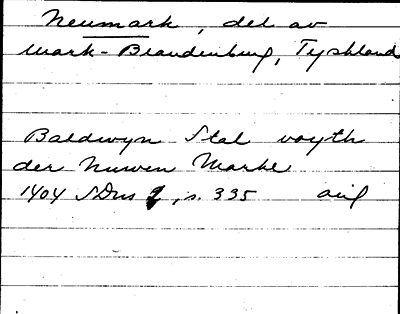 Neumark, del av
Mark-Brandenburg, Tyskland
Baldwyn Stal voyth
der Nuwen Marke
1404 SDns 1, s. 335 avil